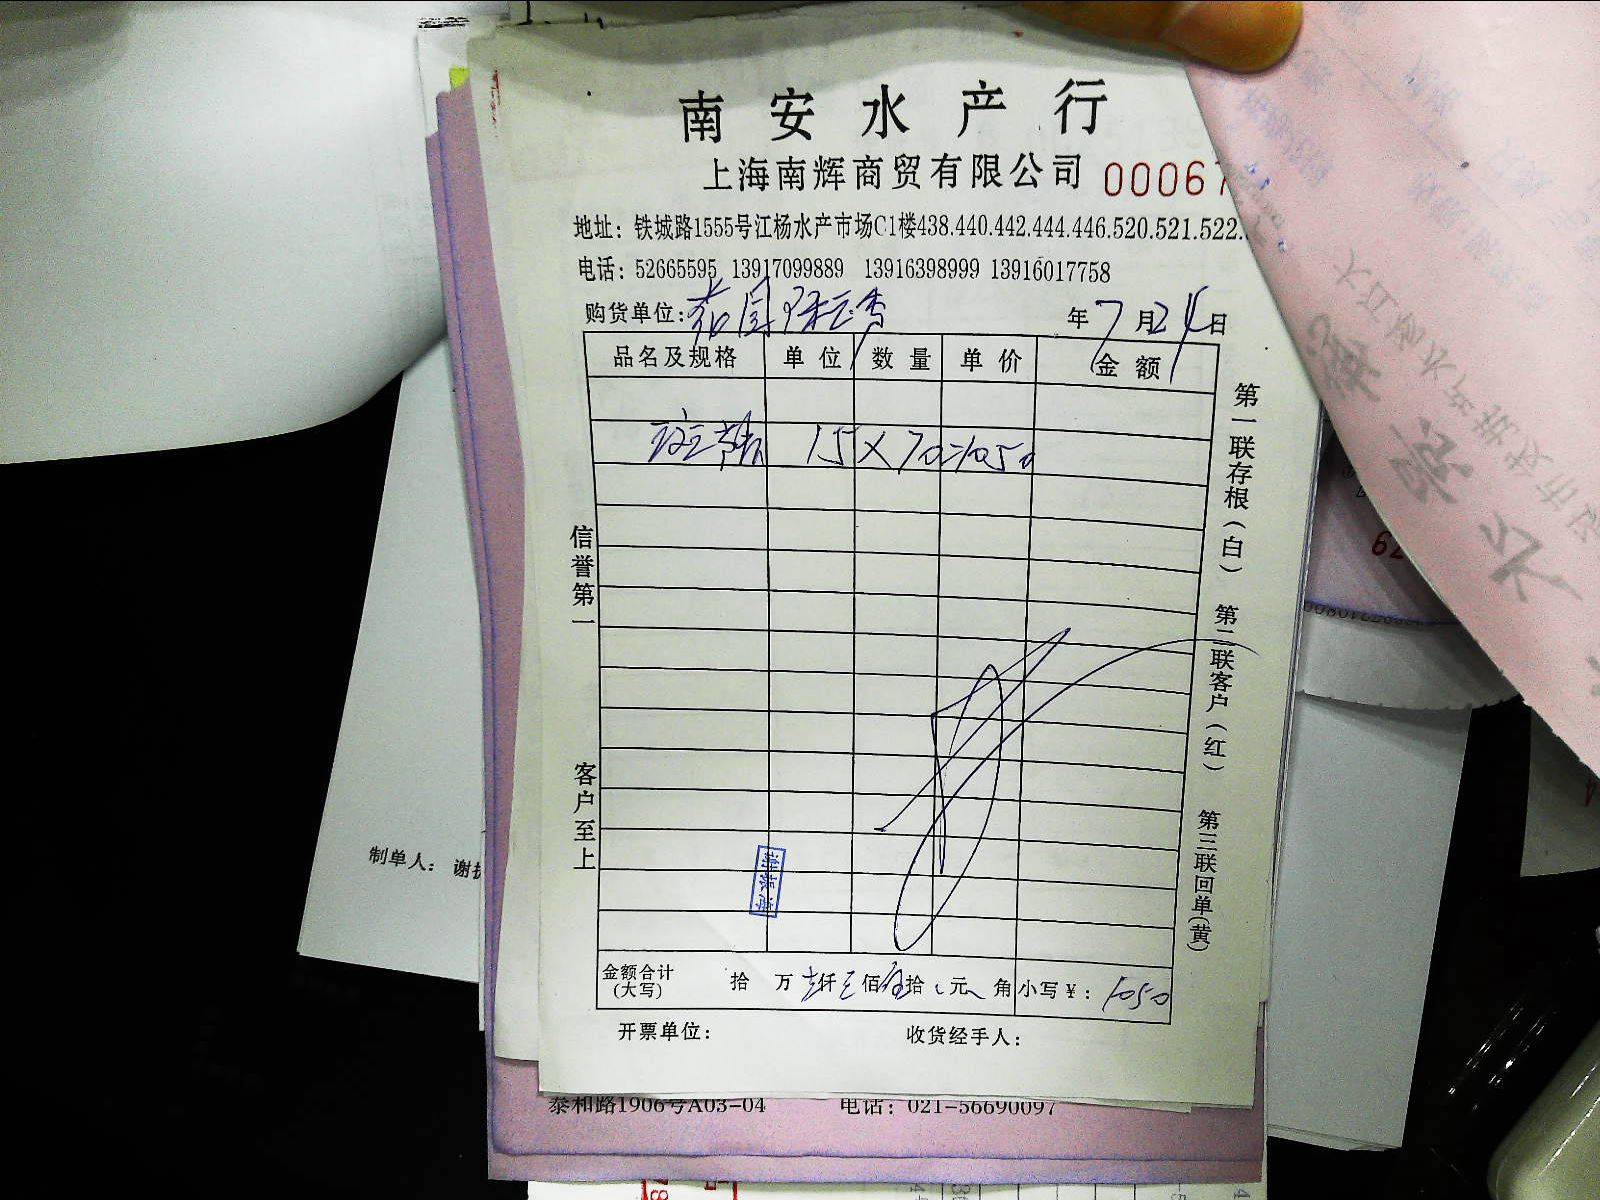 南安水产行
上海南辉商贸有限公司 00067
地址：铁城路1555号江杨水产市场C1楼438.440.442.444.446.520.521.522.
电话：52665595 13917099889 13916398999 13916017758
购货单位： 年7月24日
品名及规格 单位 数量 单价 金额
15×70=1050
信誉第一
客户至上
第一联存根（白） 第二联客户（红） 第三联回单(黄)
金额合计(大写) 拾 万 仟 佰 拾 元 角 小写￥：1050
开票单位： 收货经手人：
制单人：谢
泰和路1906号A03-04 电话：021-56690097